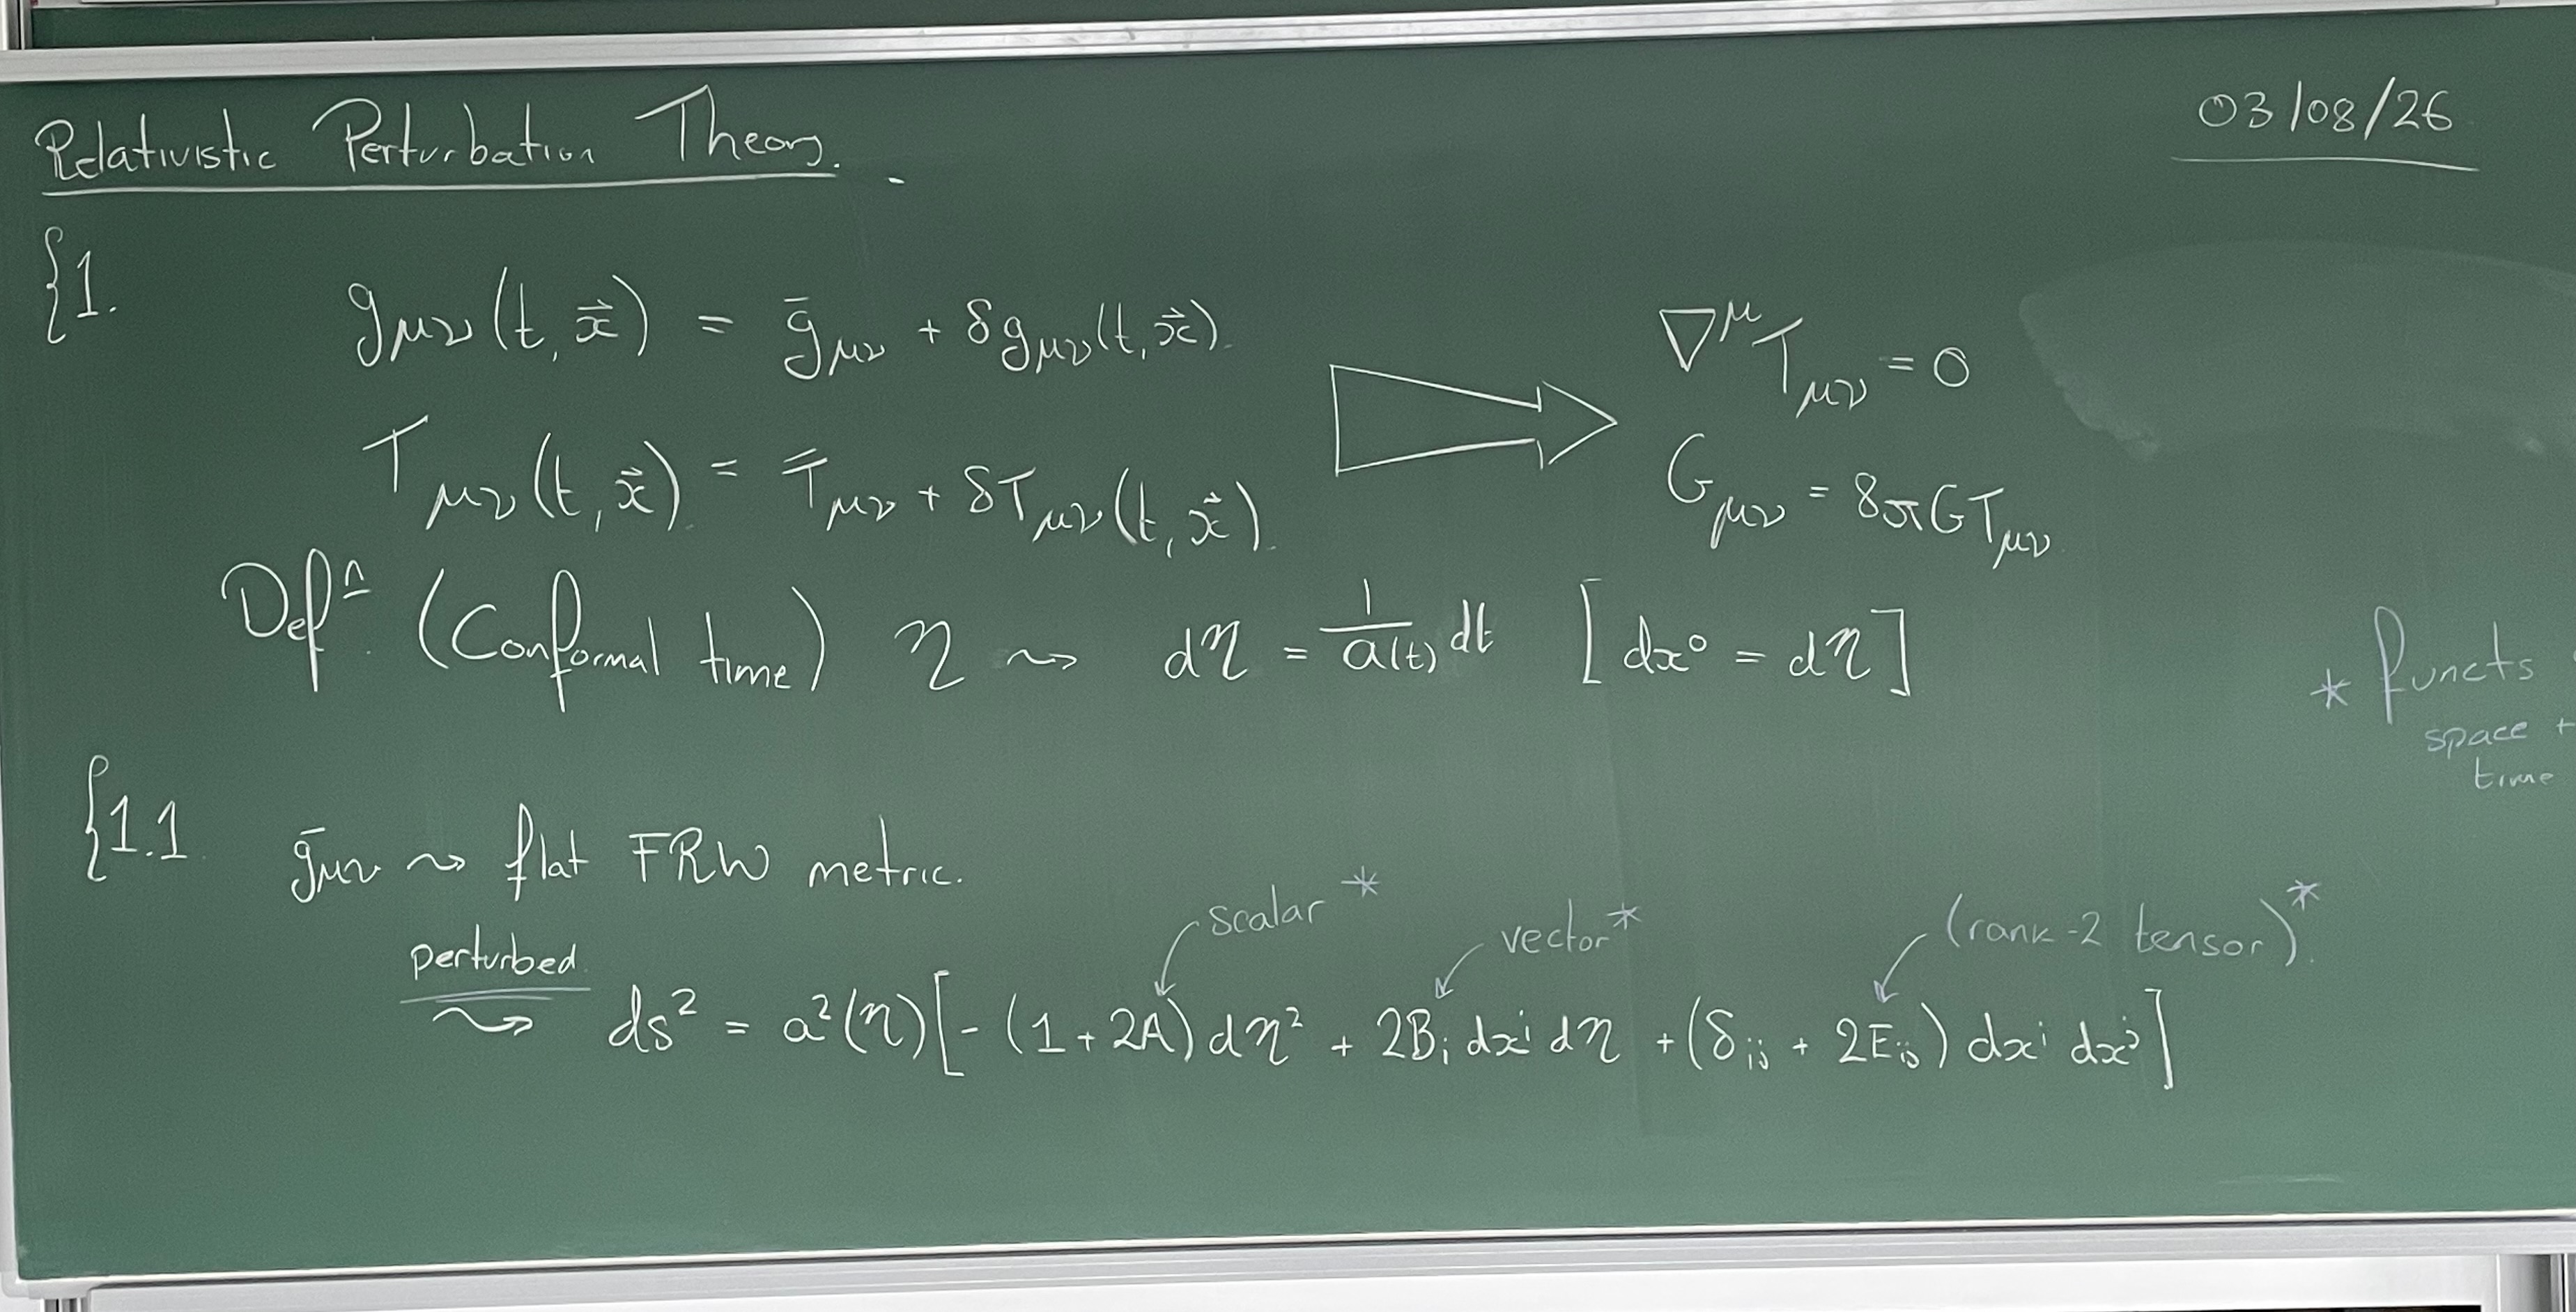 Relativistic Perturbation Theory.
03/08/26
§1.
g_μν(t, x⃗) = ḡ_μν + δg_μν(t, x⃗).
∇^μ T_μν = 0
T_μν(t, x⃗) = T̄_μν + δT_μν(t, x⃗).
G_μν = 8πG T_μν
Defⁿ (Conformal time) η ⇝ dη = 1/a(t) dt [dx⁰ = dη]
* functs
space +
time
§1.1
ḡ_μν ⇝ flat FRW metric.
scalar *
vector *
(rank-2 tensor)*
perturbed
⇝ ds² = a²(η)[-(1 + 2A) dη² + 2B_i dx^i dη + (δ_ij + 2E_ij) dx^i dx^j]